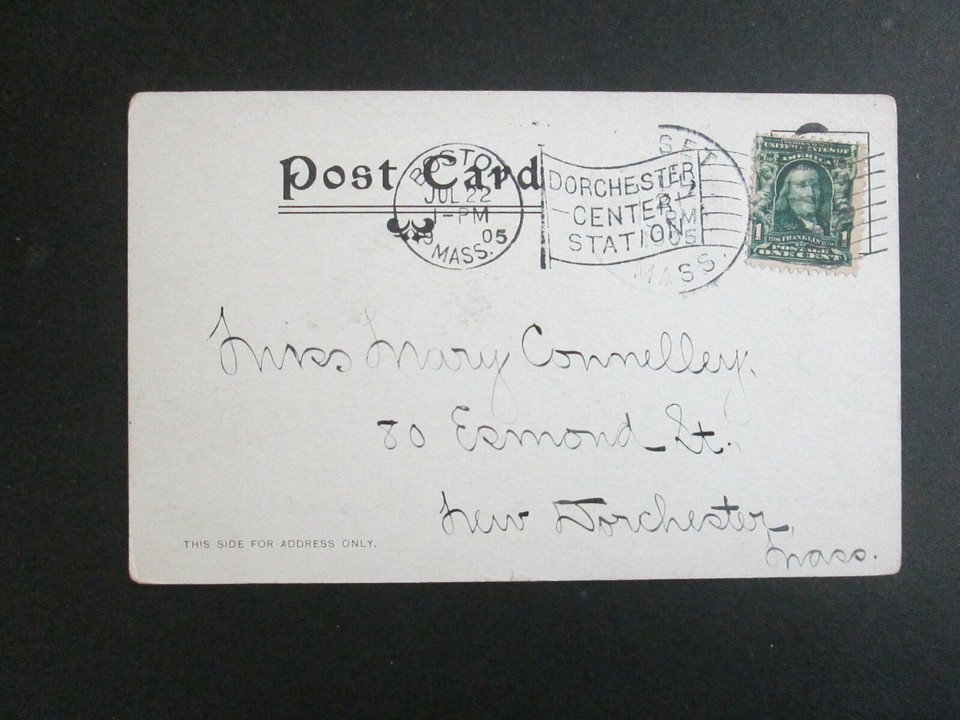 Post Card
BOSTON
JUL 22
1-PM
19 05
MASS.
DORCHESTER
CENTER
STATION
SET
PM
05
MASS.
UNITED STATES OF
AMERICA
1 FRANKLIN 1
POSTAGE
ONE CENT
Miss Mary Connelley.
80 Esmond St.,
New Dorchester,
Mass.
THIS SIDE FOR ADDRESS ONLY.